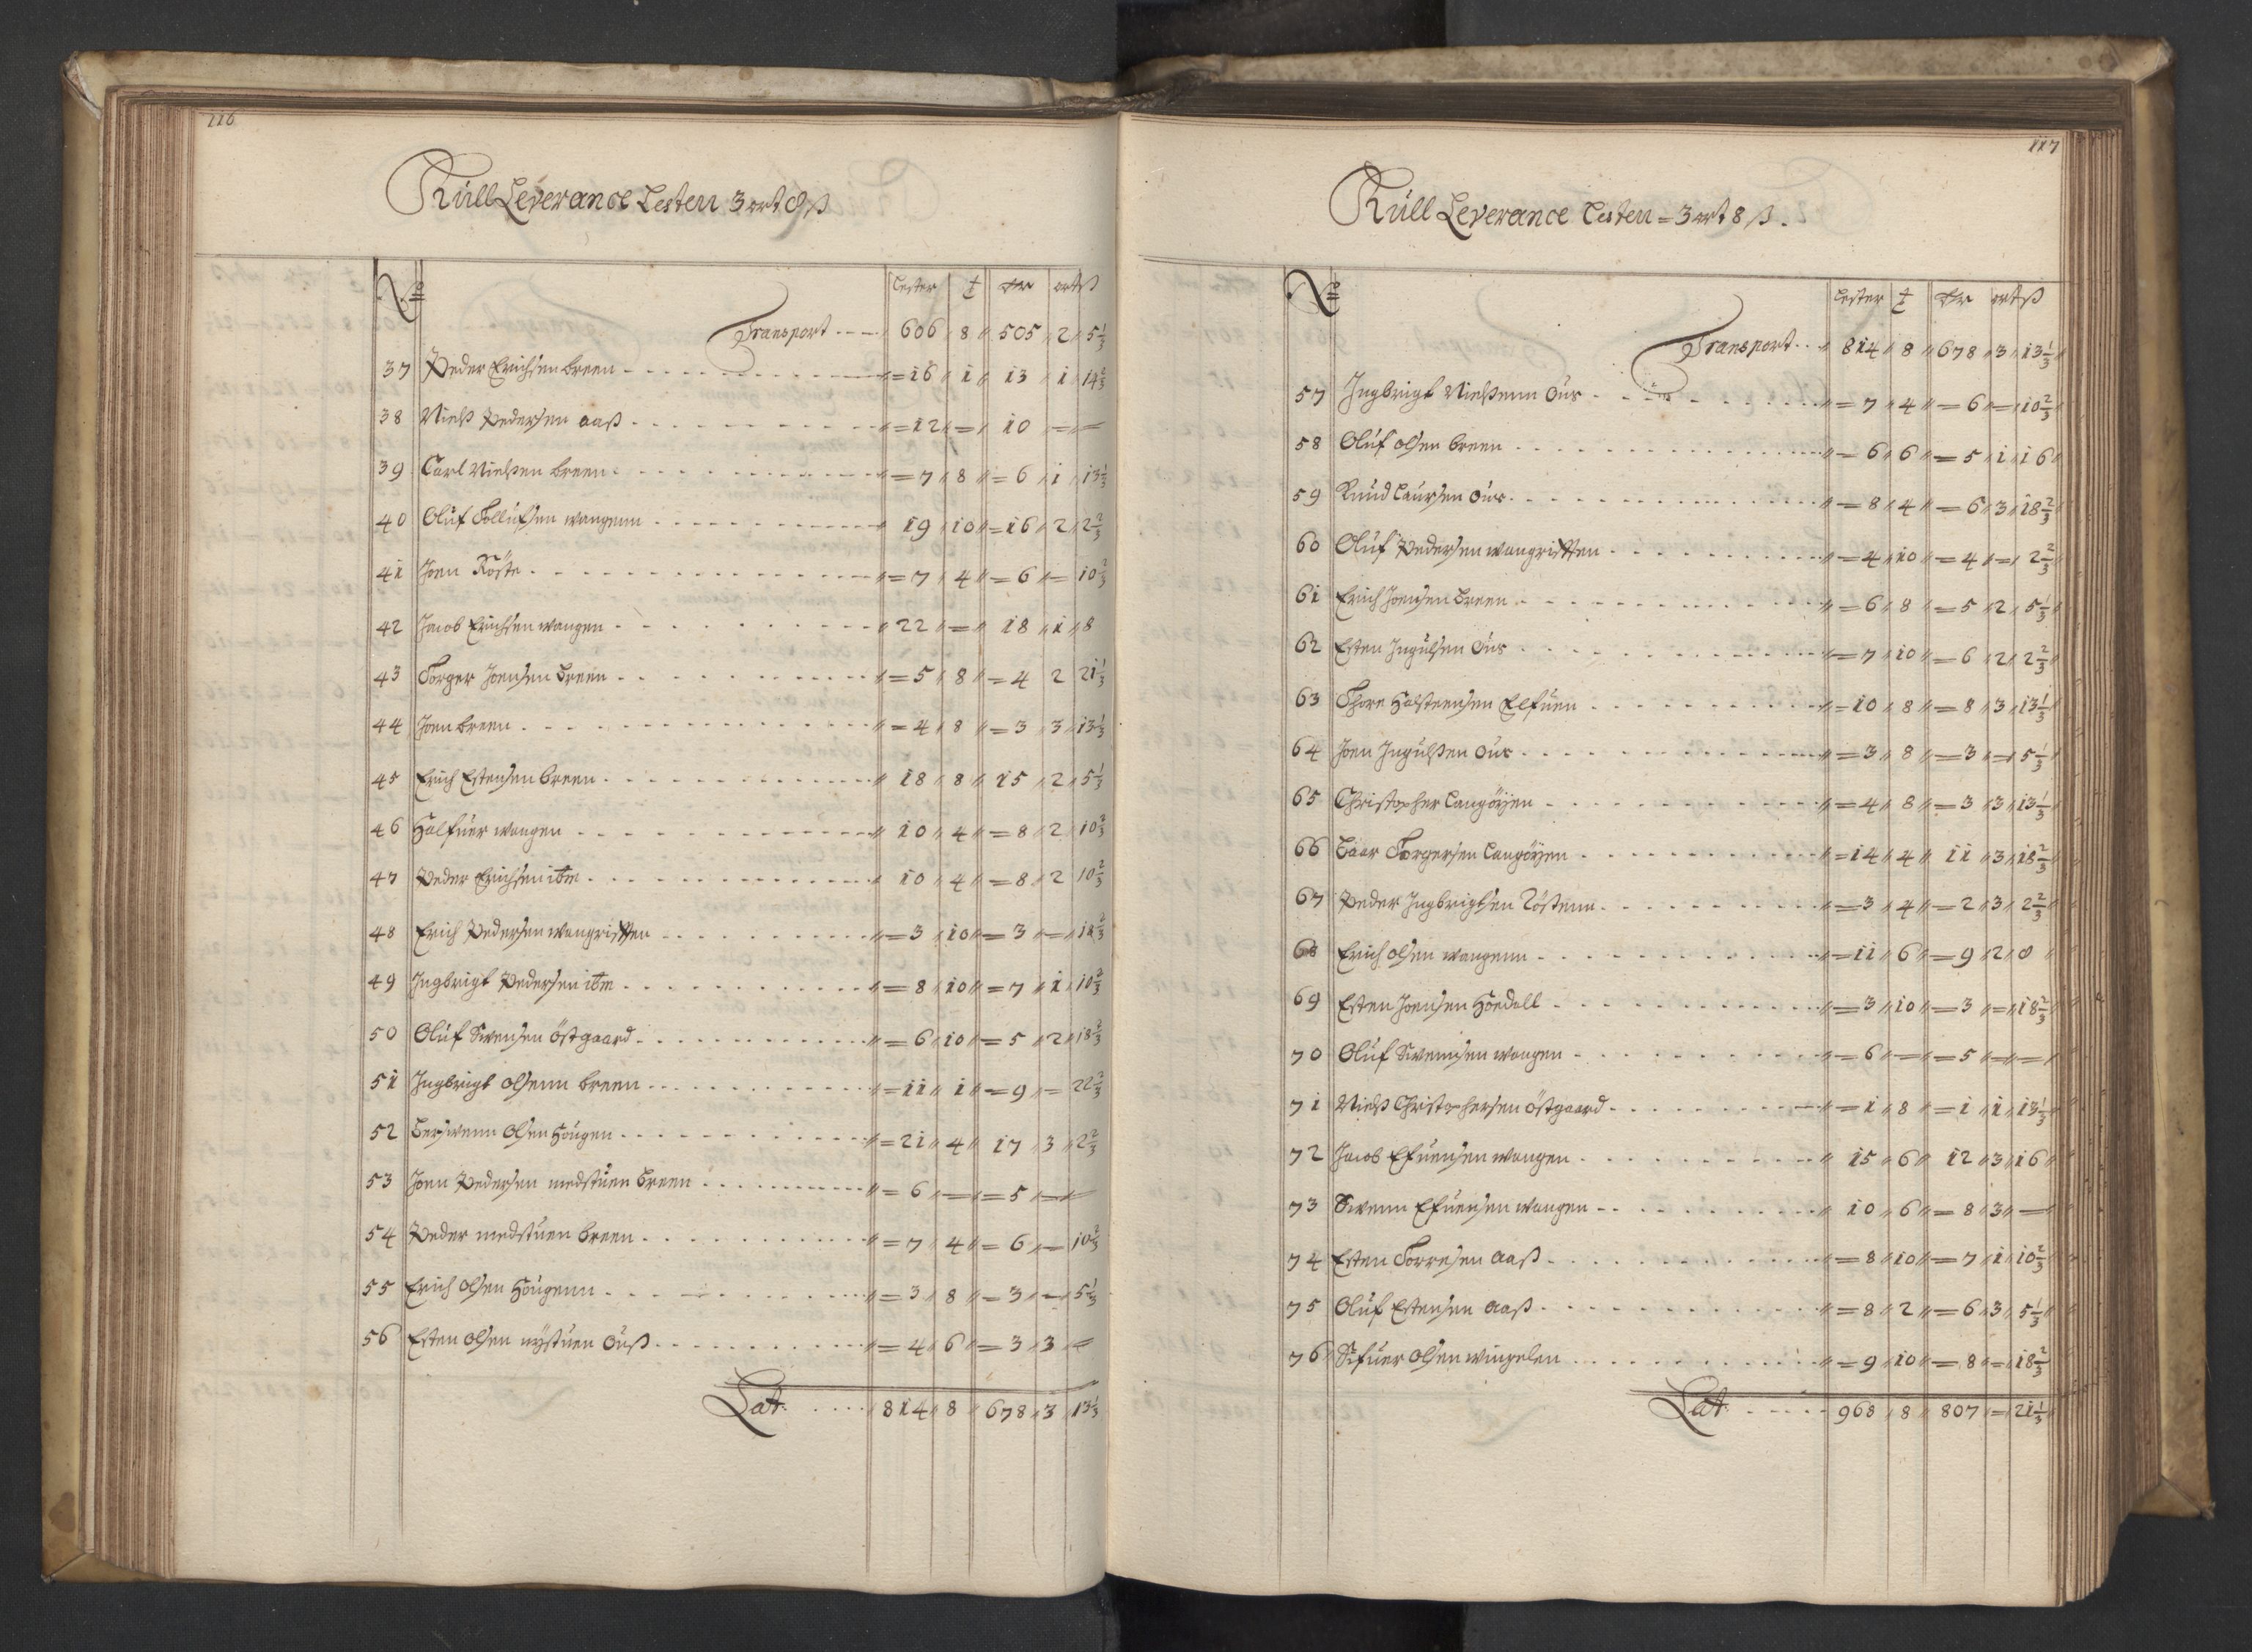 116
Küll Leverance Lesten 3 ort 8 ß
No Lester t dr ort ß
Transport 606 8 505 2 5 1/3
37 Peder Erichsen breen = 16 1 13 1 14 2/3
38 Nielß Pedersen aaß = 12 = 10 = =
39 Carl Nielßen breen = 7 8 = 6 1 13 1/3
40 Oluf Tollufsen wangenn 19 10 = 16 2 2 2/3
41 Joen Röste = 7 4 = 6 = 10 2/3
42 Jacob Erichsen wangen 22 = 18 1 8
43 Torger Joensen breen = 5 8 = 4 2 21 1/3
44 Joen breen = 4 8 = 3 3 13 1/3
45 Erich Estensen breen 18 8 15 2 5 1/3
46 Halfuer wangen 10 4 = 8 2 10 2/3
47 Peder Erichsen itm 10 4 = 8 2 10 2/3
48 Erich Pedersen wangrisften = 3 10 = 3 = 18 2/3
49 Ingbrigt Pedersen itm = 8 10 = 7 1 10 2/3
50 Oluf Swensen östgaard = 6 10 = 5 2 18 2/3
51 Ingbrigt olsenn breen = 11 1 = 9 = 22 2/3
52 Berswenn olsen Hougen = 21 4 17 3 2 2/3
53 Joen Pedersen medstuen breen = 6 = = 5 = =
54 Peder medstuen breen = 7 4 = 6 = 10 2/3
55 Erich olsen Hougenn = 3 8 = 3 = 5 1/3
56 Esten olsen nÿstuen Ouß = 4 6 = 3 3 =
Lat. 814 8 678 3 13 1/3
117
Küll Leverance Lesten = 3 ort 8 ß.
No Lester t dr ort ß
Transport 814 8 678 3 13 1/3
57 Ingbrigt Nielßenn Ous = 7 4 = 6 = 10 2/3
58 Oluf olsen breen = 6 6 = 5 1 16
59 Knud Laursen Ous = 8 4 = 6 3 18 2/3
60 Oluf Pedersen wangrisften = 4 10 = 4 = 2 2/3
61 Erich Joensen breen = 6 8 = 5 2 5 1/3
62 Esten Ingulsen Ous = 7 10 = 6 2 2 2/3
63 Thore Halsteensen Elfuen = 10 8 = 8 3 13 1/3
64 Joen Ingulßen Ous = 3 8 = 3 = 5 1/3
65 Christopher Langöÿen = 4 8 = 3 3 13 1/3
66 Baar Torgersen Langöÿen = 14 4 11 3 18 2/3
67 Peder Ingbrigtsen Röstenn = 3 4 = 2 3 2 2/3
68 Erich olsen wangenn = 11 6 = 9 2 8
69 Esten Joensen Hoedall = 3 10 = 3 = 18 2/3
70 Oluf Swensen wangen = 6 = = 5 = =
71 Nielß Christophersen östgaard = 1 8 = 1 1 13 1/3
72 Jacob Efuensen wangen 15 6 12 3 16
73 Swenn Efuensen wangen 10 6 = 8 3 =
74 Esten Torresen aaß = 8 10 = 7 1 10 2/3
75 Oluf Estensen aaß = 8 2 = 6 3 5 1/3
76 Sifuer olsen wingelen = 9 10 = 8 = 18 2/3
Lat 968 8 807 = 21 1/3